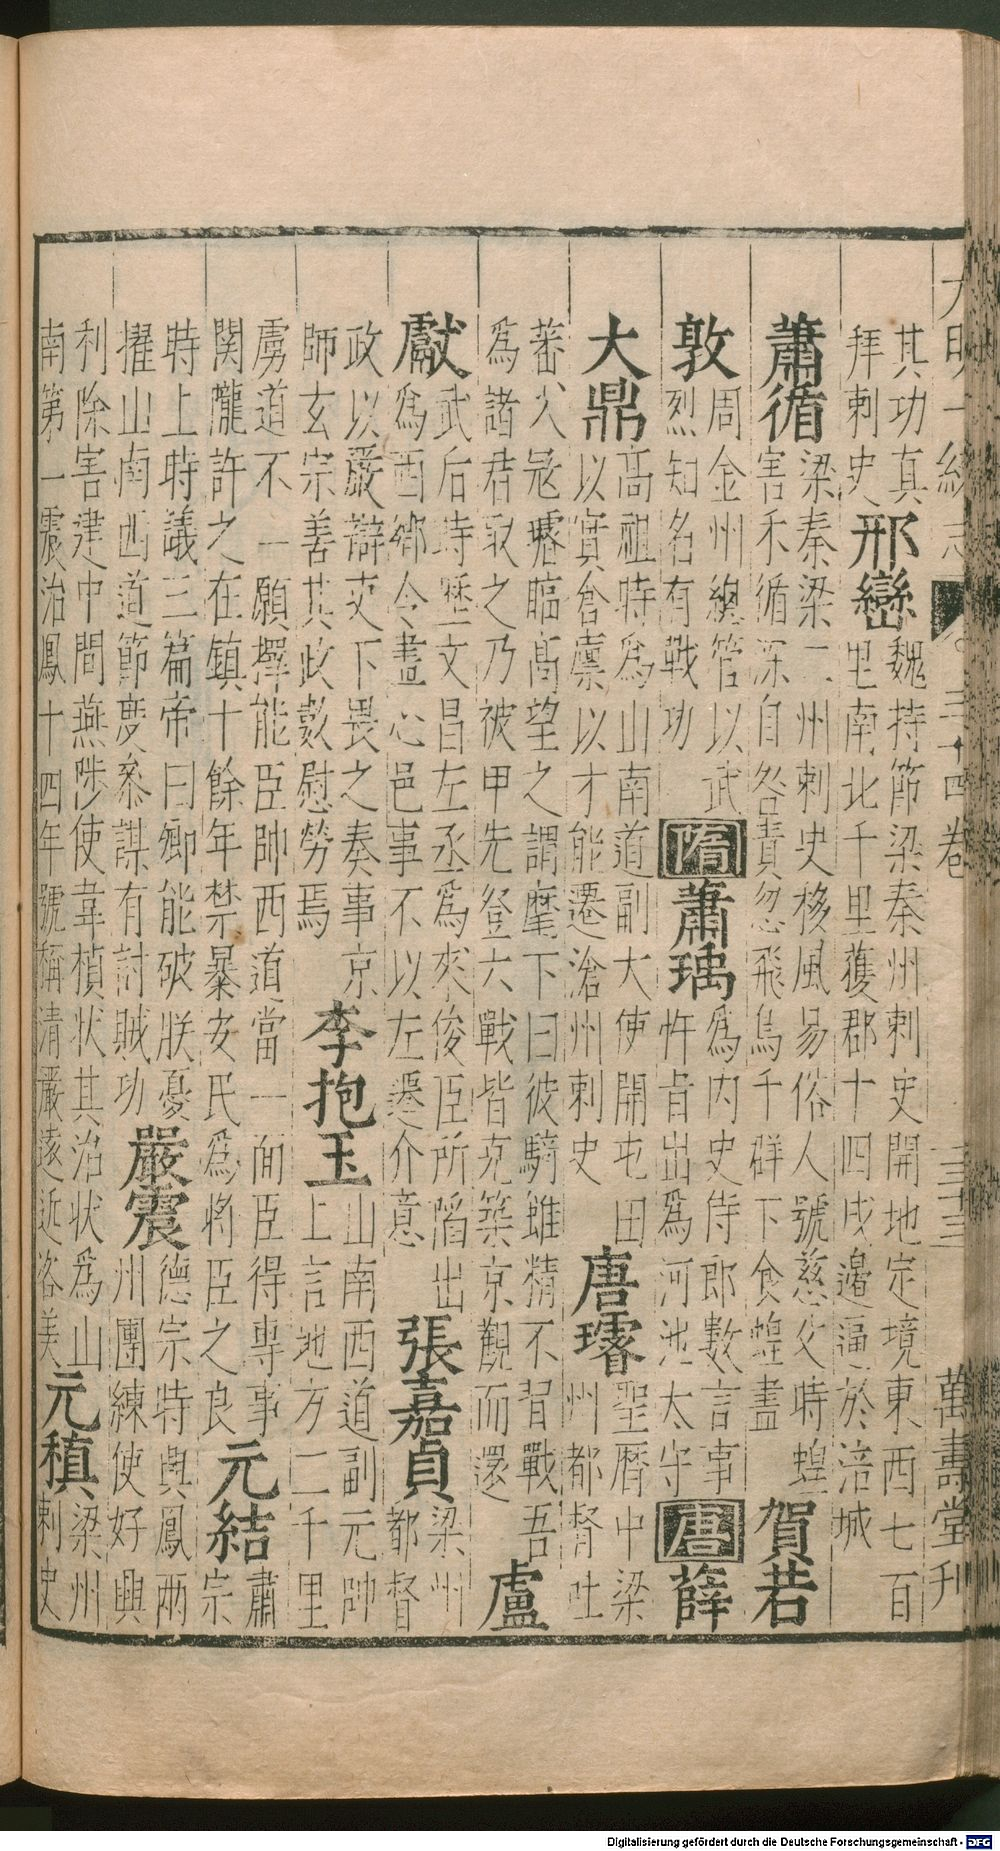 大明一統志 三十四卷 三十三 萬壽堂刊
其功真
拜刺史
邢巒
魏持節梁秦州刺史開地定境東西七百
里南北千里獲郡十四戍邊逼於涪城
蕭循
梁秦梁二州刺史移風易俗人號慈父時蝗
害禾循深自咎責忽飛鳥千群下食蝗盡
賀若
敦
周金州總管以武
烈知名有戰功
隋
蕭瑀
爲內史侍郎數言事
忤旨出爲河池太守
唐
薛
大鼎
高祖時爲山南道副大使開屯田
以實倉廩以才能遷滄州刺史
唐璿
聖曆中梁
州都督吐
蕃入冦璿臨髙望之謂麾下曰彼騎雖精不習戰吾
爲諸君取之乃被甲先登六戰皆克築京觀而還
盧
獻
武后時歷文昌左丞爲來俊臣所陷出
爲西鄉令盡心邑事不以左遷介意
張嘉貞
梁州
都督
政以嚴辯吏下畏之奏事京
師玄宗善其政數慰勞焉
李抱玉
山南西道副元帥
上言地方二千里
虜道不一願擇能臣帥西道當一面臣得專事
關隴許之在鎮十餘年禁暴安民爲將臣之良
元結
肅
宗
時上時議三篇帝曰卿能破朕憂
擢山南西道節度參謀有討賊功
嚴震
德宗特與鳳兩
州團練使好興
利除害建中間燕陟使韋楨狀其治狀爲山
南第一震治鳳十四年號稱清嚴遠近咨美
元稹
梁州
刺史
Digitalisierung gefördert durch die Deutsche Forschungsgemeinschaft - DFG